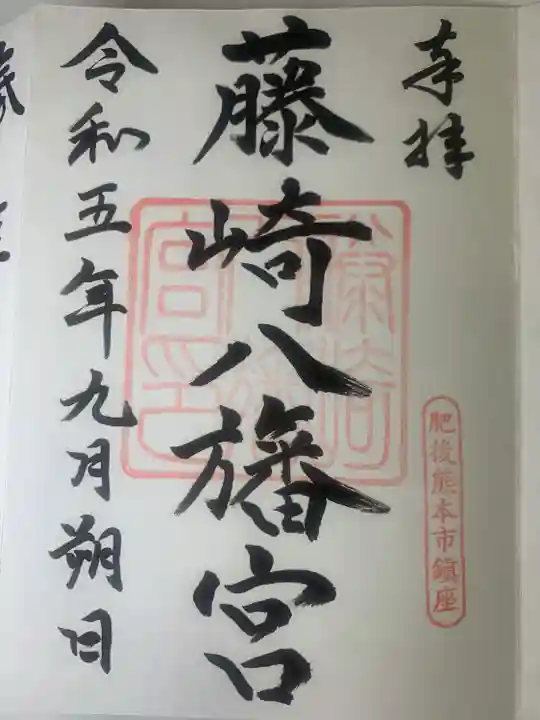 奉拝
肥後熊本市鎮座
藤崎八旛宮
令和五年九月朔日